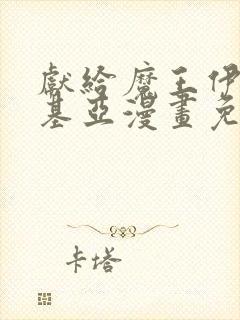 獻給魔王伊
基亞漫畫免
卡塔